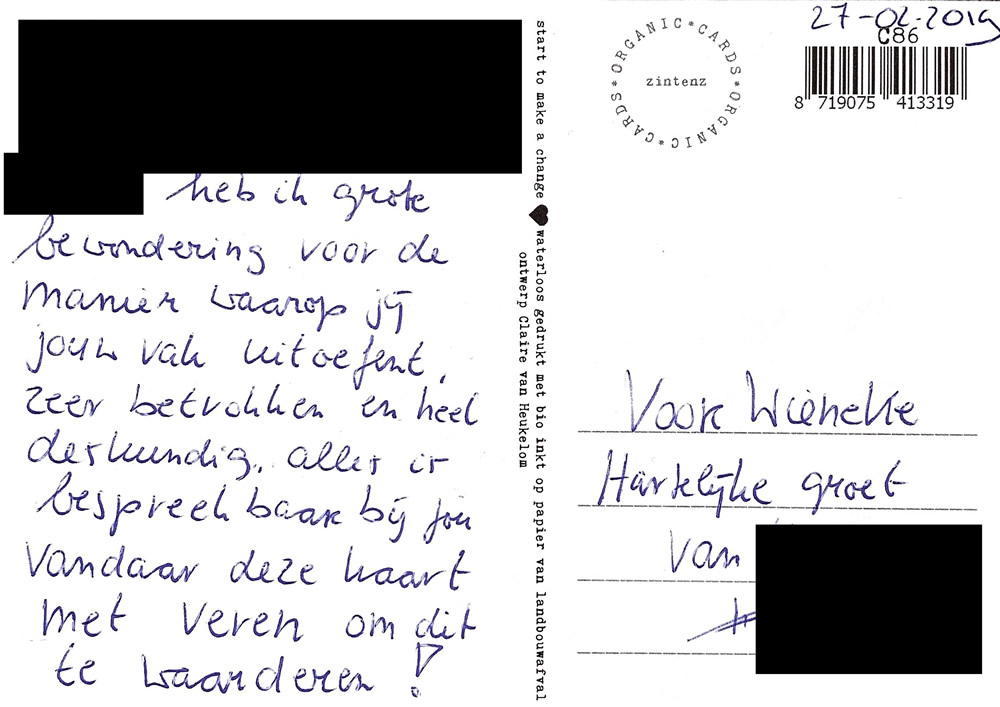 heb ik grote
bewondering voor de
manier waarop jij
jouw vak uitoefent,
zeer betrokken en heel
deskundig, alles is
bespreekbaar bij jou
Vandaar deze kaart
met veren om dit
te waarderen!
start to make a change ♥ waterloos gedrukt met bio inkt op papier van landbouwafval
ontwerp Claire van Heukelom
ORGANIC*CARDS*ORGANIC*CARDS*
zintenz
27-02-2019
C86
8 719075 413319
Voor Wieneke
Hartelijke groet
van